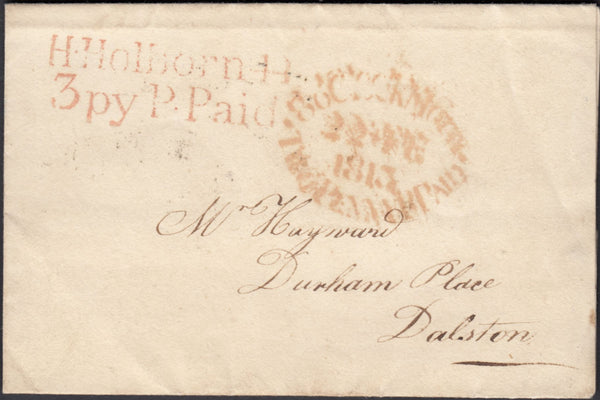 H.Holborn
3py P.Paid
8 o'Clock
1813
Mr Hayward
Durham Place
Dalston